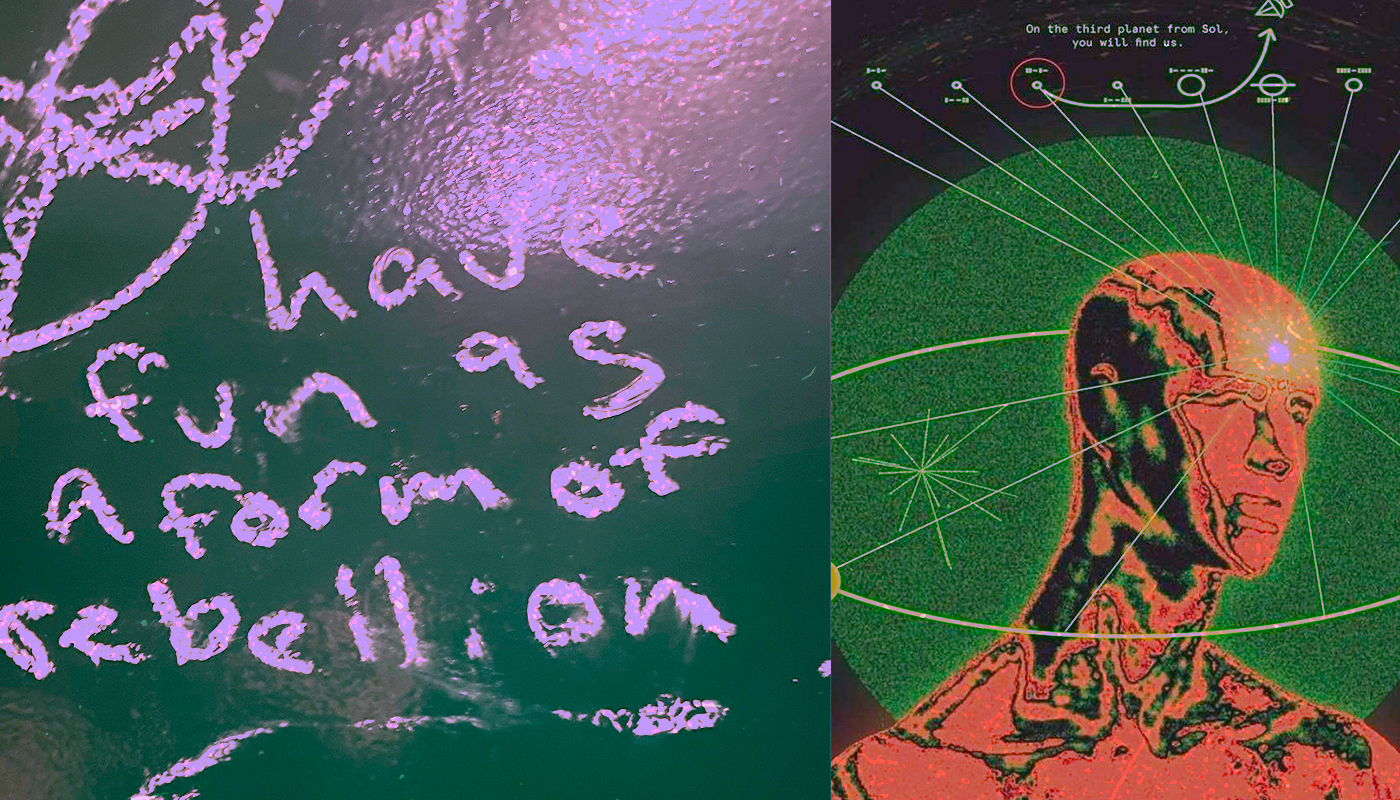 have
fun as
a form of
rebellion
On the third planet from Sol,
you will find us.